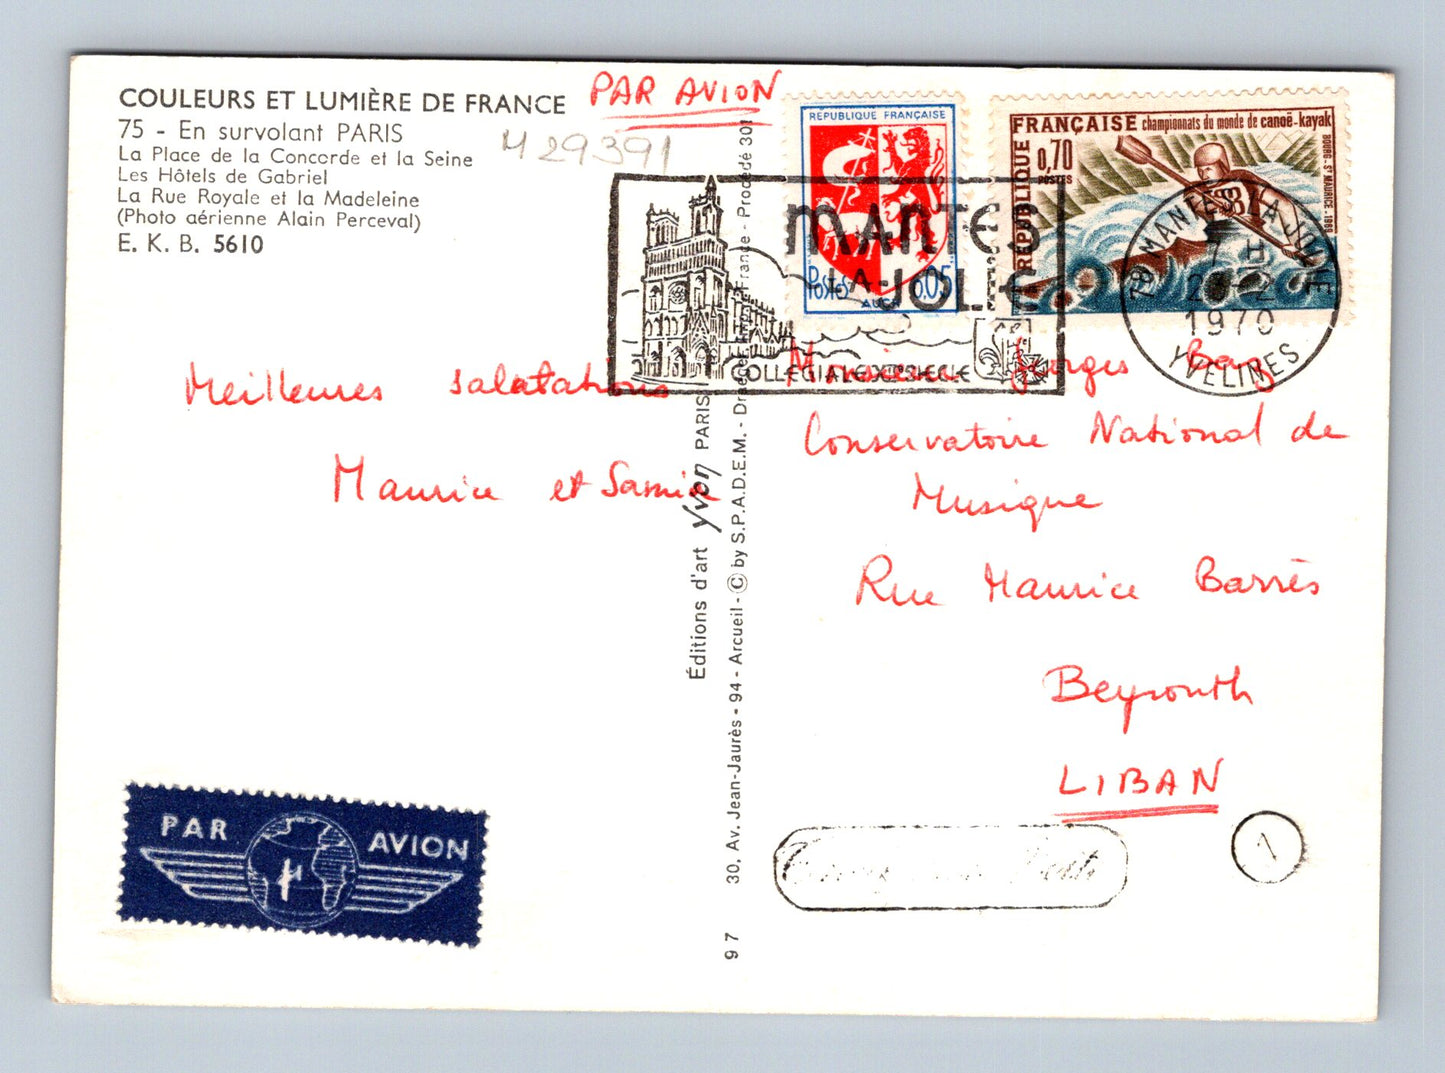 COULEURS ET LUMIÈRE DE FRANCE
75 - En survolant PARIS
La Place de la Concorde et la Seine
Les Hôtels de Gabriel
La Rue Royale et la Madeleine
(Photo aérienne Alain Perceval)
E. K. B. 5610
PAR AVION
M 29391
REPUBLIQUE FRANÇAISE
POSTES
0,05
AUCH
RÉPUBLIQUE FRANÇAISE
championnats du monde de canoë-kayak
BOURG-ST MAURICE-1969
0,70
POSTES
MANTES
LA JOLIE
COLLEGIALE XIIe SIECLE
78 MANTES LA JOLIE
7 H
1970
YVELINES
Meilleures salutations
Maurice et Samia
Monsieur Georges Baz
Conservatoire National de
Musique
Rue Maurice Barrès
Beyrouth
LIBAN
Éditions d'art Yvon PARIS
30, Av. Jean-Jaurès - 94 - Arcueil - © by S.P.A.D.E.M. - Draeger Imp. France - Procédé 301
97
PAR AVION
1